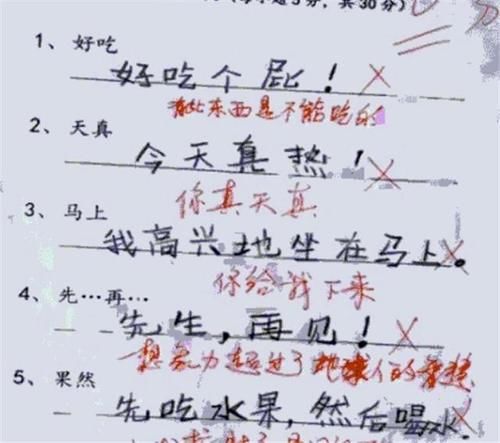 (每小题5分，共30分)
1、好吃
好吃个屁！
有些东西是不能吃的
2、天真
今天真热！
你真天真
3、马上
我高兴地坐在马上。
你给我下来
4、先…再…
先生，再见！
想象力超过了地球人的智慧
5、果然
先吃水果，然后喝水